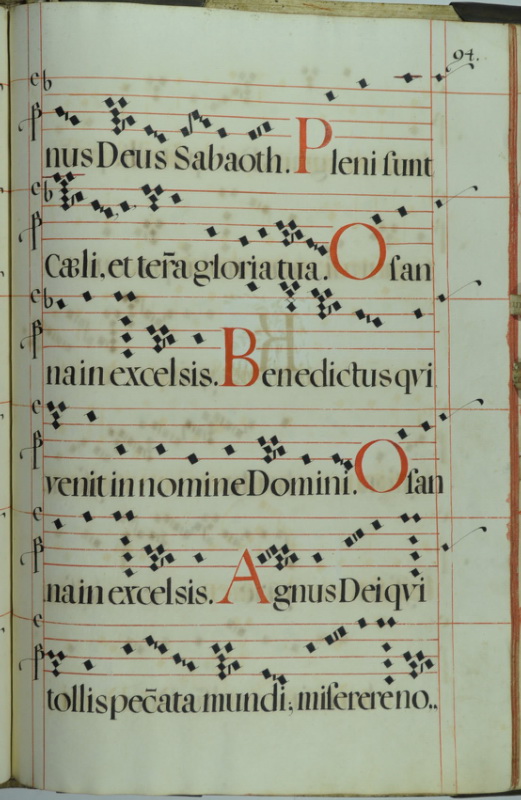 94.
nus Deus Sabaoth. Pleni ſunt
Cæli, et terr̃a gloria tua. Oſan
na in excelsis. Benedictus qvi
venit in nomine Domini. Oſan
na in excelsis. Agnus Dei qvi
tollis pec̃ata mundi, miſerere no..